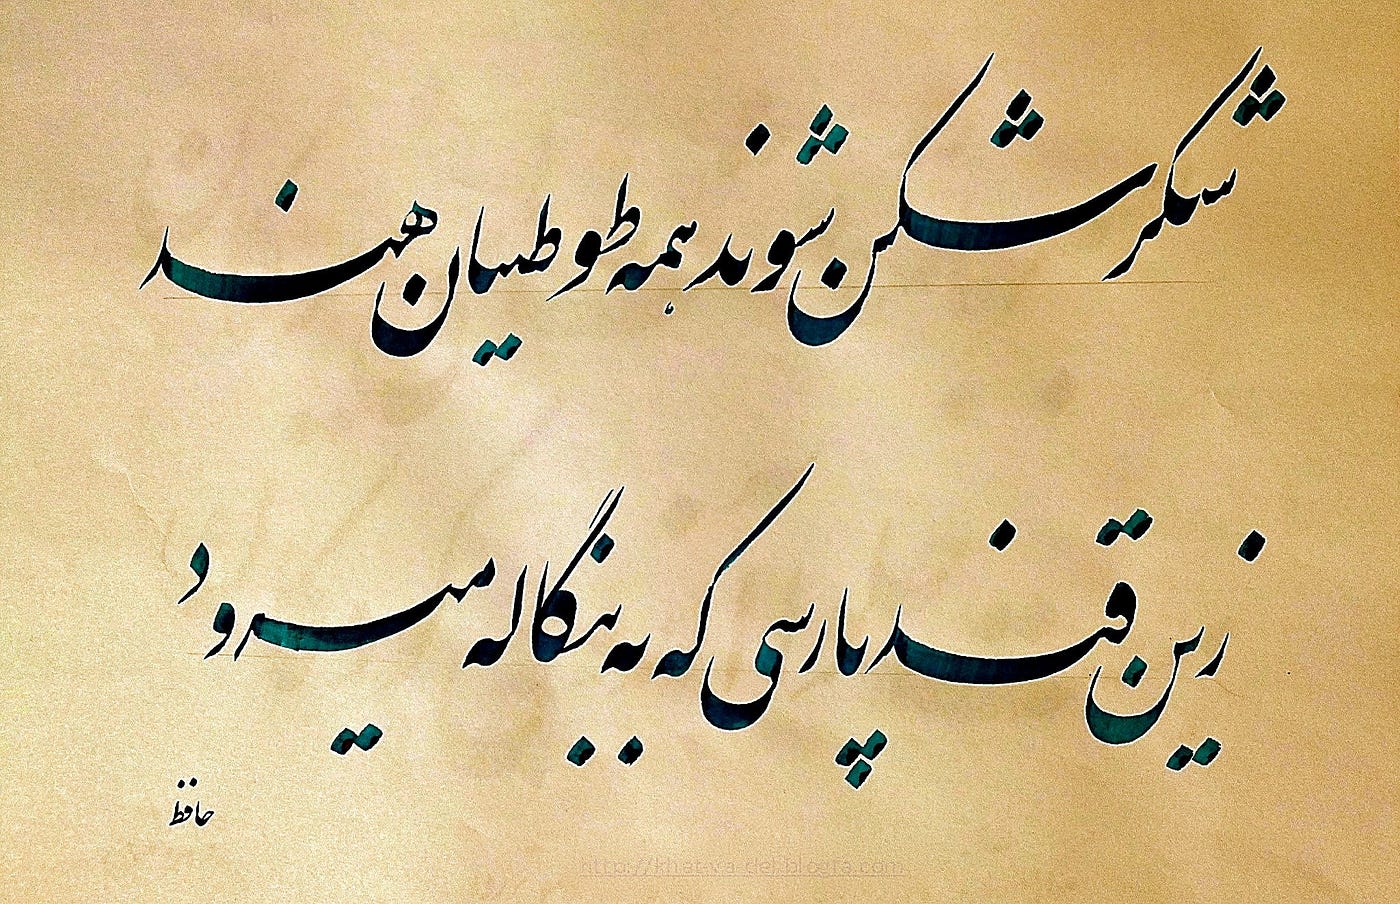 شکرشکن شوند همه طوطیان هند
زین قند پارسی که به بنگاله میرود
حافظ
http://khat-va-del.blogfa.com